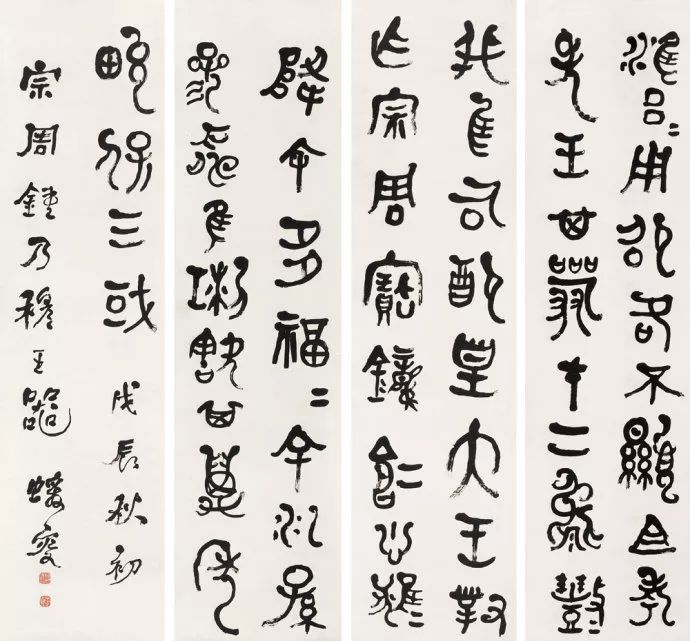 雝用卲各不顯且考
先王其嚴才上
我隹司配皇天王對
乍宗周寶鐘倉悤
降余多福余順孫
參壽隹琍㝬其萬年
畯保四或 戊辰秋初
宗周鐘乃穆王器 蝯叟